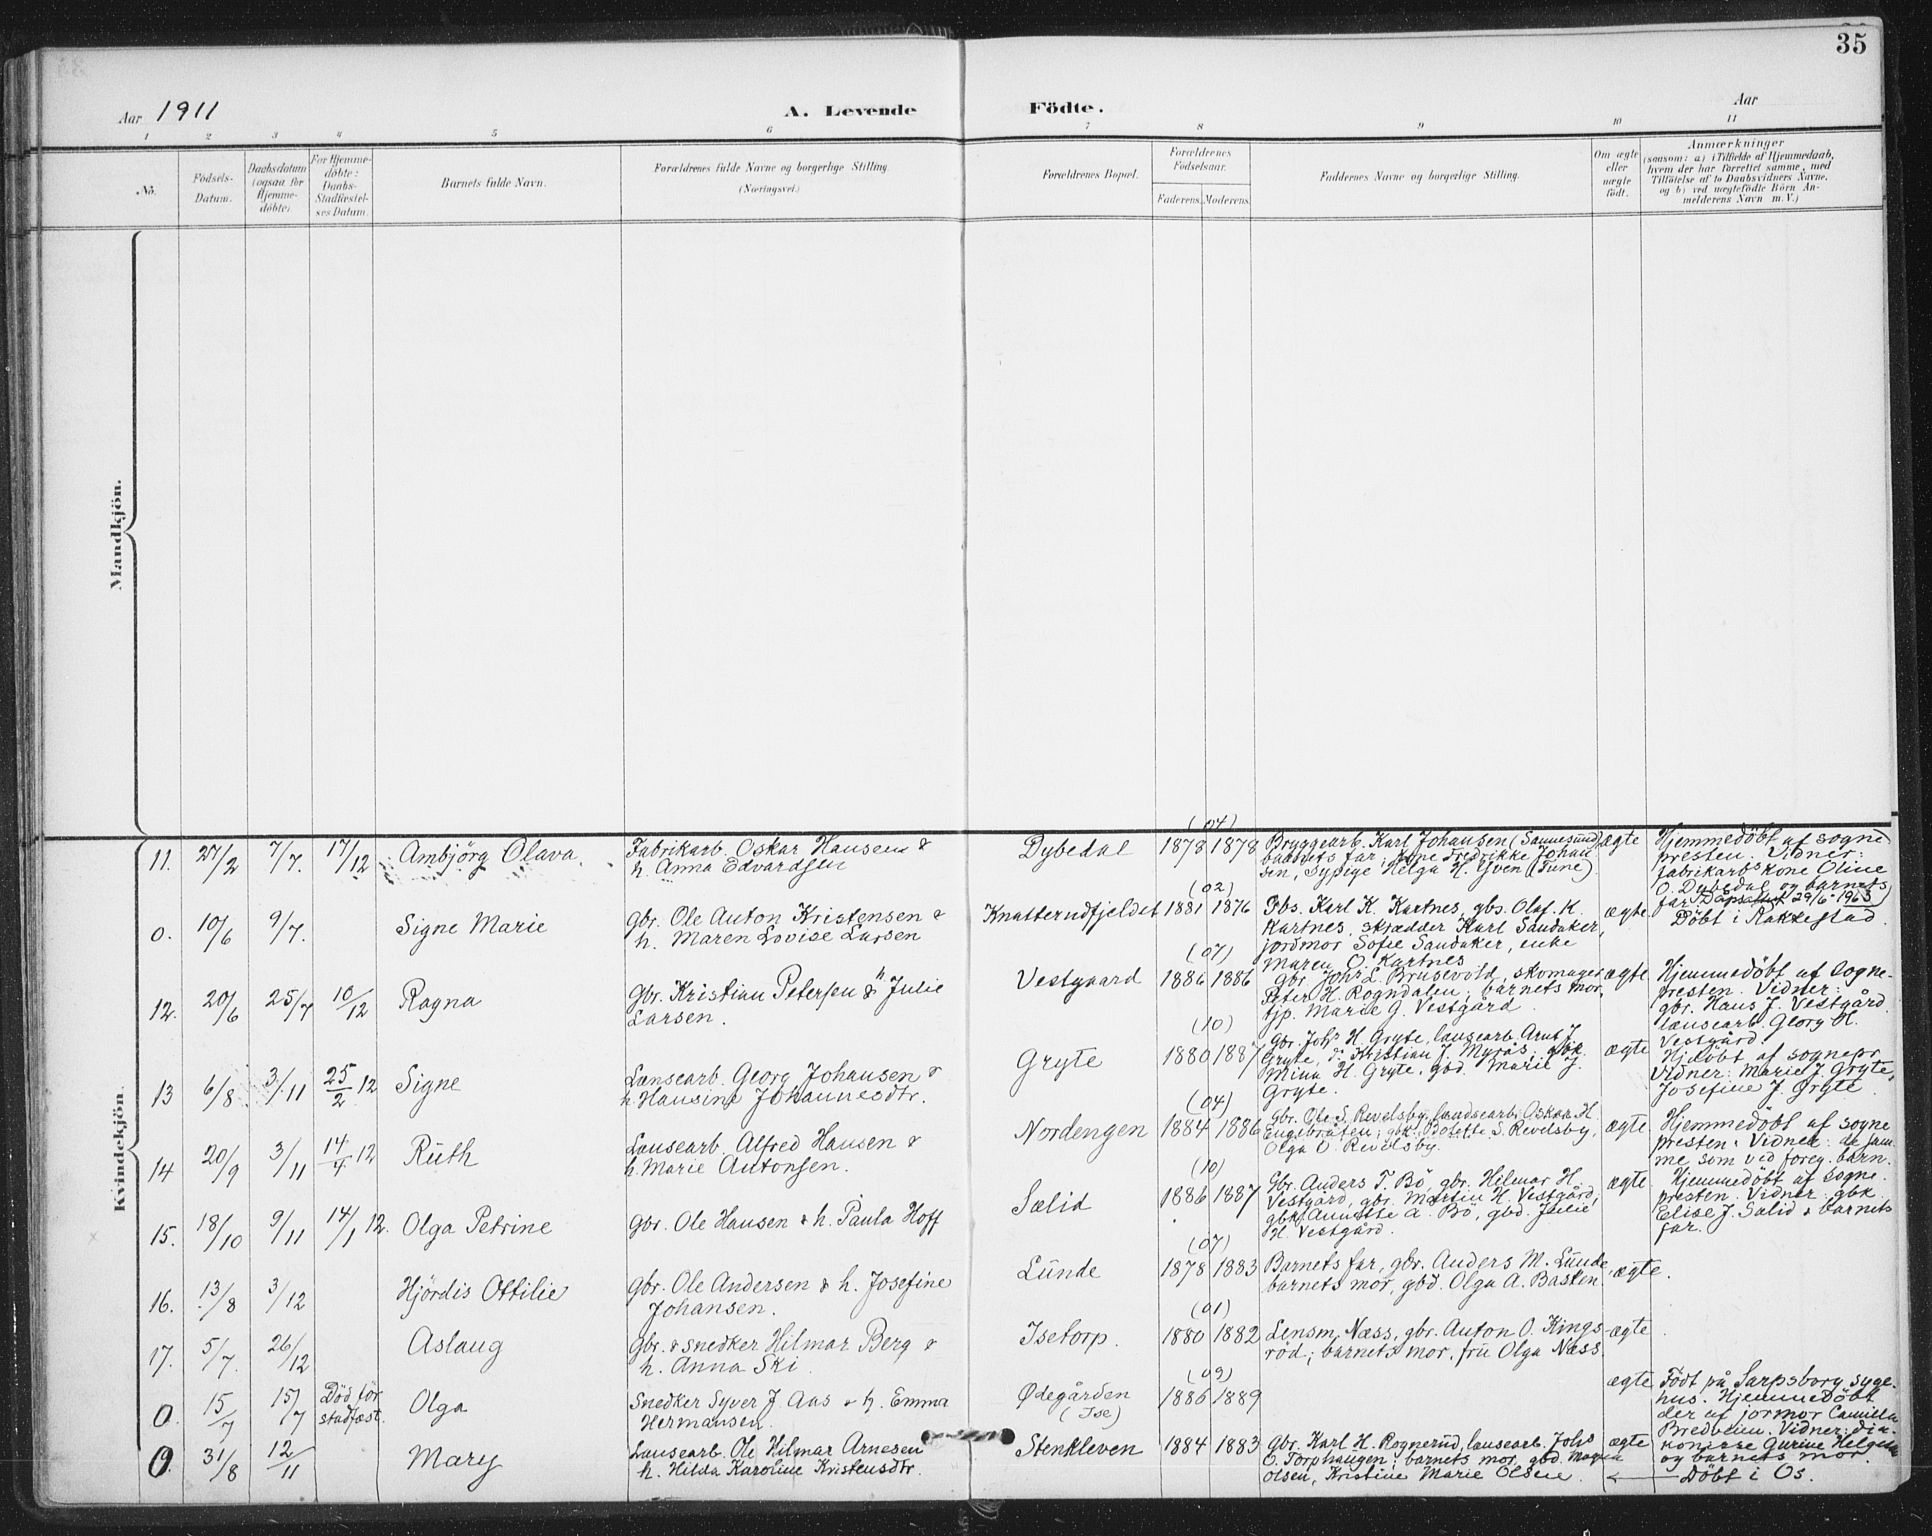 35
Aar 1911
A. Levende Födte.
Aar
1 2 3 4 5 6 7 8 9 10 11
No.
Födsels-
Datum.
Daabsdatum
(ogsaa for
Hjemme-
döbte).
For Hjemme-
döbte:
Daabs-
Stadfæstel-
ses Datum.
Barnets fulde Navn.
Forældrenes fulde Navne og borgerlige Stilling.
(Næringsvei.)
Forældrenes Bopæl.
Forældrenes
Födselsaar.
Faderens. Moderens.
Faddernes Navne og borgerlige Stilling.
Om ægte
eller
uægte
födt.
Anmærkninger
(saasom: a) i Tilfælde af Hjemmedaab,
hvem der har forrettet samme, med
Tilföielse af to Daabsvidners Navne,
og b) ved uægtefödte Börn An-
melderens Navn m. V.)
Mandkjön.
Kvindekjön.
11. 27/2 7/7. 17/12 Ambjörg Olava.
Fabrikarb. Oskar Hansen &
h. Anna Edvardsen
Dybedal (04) 1878 1878
Bryggearb. Karl Johansen (Sannesund),
barnets far, Fredrikke Johan
sen, sypige Helga H. Yven (Tune).
ægte
Hjemmedöbt af sogne
presten. Vidner:
fabrikarbs kone Oline
O. Dybedal og barnets
far. 29/6-1963
0. 10/6 9/7. Signe Marie
gbr. Ole Anton Kristensen &
h. Maren Lovise Larsen
Knatterudfjeldet (02) 1881 1876
Gbs. Karl K. Kartnes, gbs. Olaf K.
Kartnes, skrædder Karl Sandaker,
jordmor Sofie Sandaker, enke
Maren O. Kartnes
ægte
Döbt i Rakkestad
12. 20/6 25/7 10/12 Ragna
Gbr. Kristian Petersen & Julie
Larsen.
Vestgaard (07) 1886 1886
gbr. Johs L. Brusevold, skomager
Peter H. Rogndalen; barnets mor,
tjp. Marie G. Vestgård
ægte
Hjemmedöbt af sogne-
presten. Vidner:
gbr. Hans J. Vestgård
lænsearb. Georg H.
Vestgård.
13 6/8 3/11 25/2 12 Signe
Lænsearb. Georg Johansen &
h. Hansine Johannesdtr.
Gryte (10) 1880 1887
Gbr. Johs H. Gryte, lansearb. Arnt J.
Gryte, do Kristian J. Myrås, gbk
Mina H. Gryte, gbd. Marie J.
Gryte.
ægte
Hjdöbt af sognepr
Vidner: Marie J. Gryte,
Josefine J Gryte
14 20/9 3/11 14/4 12 Ruth
Lansearb. Alfred Hansen &
h. Marie Antonsen.
Nordengen (04) 1884 1886
Gbr. Ole S. Revelsby, landsearb. Oskar H.
Engebråten; gbk. Bolette S. Revelsby,
Olga O. Revelsby.
ægte
Hjemmedöbt af sogne
presten. Vidner: de sam
me som ved foreg. barn.
15. 18/10 9/11 14/1 12. Olga Petrine
Gbr. Ole Hansen & h. Paula Hoff
Sælid (10) 1886 1887
Gbr. Anders T. Bö, gbr. Helmar H.
Vestgård, gbr. Martin H. Vestgård,
gbk. Annette A. Bö, gbd. Julie
H. Vestgård.
ægte
Hjemmedöbt af sogne.
presten. Vidner: gbk
Elise J. Sælid & barnets
far.
16. 13/8 3/12 Hjördis Ottilie
Gbr. Ole Andersen & h. Josefine
Johansen.
Lunde (07) 1878 1883
Barnets far, gbr. Anders M. Lunde,
barnets mor, gbd. Olga A. Basten
ægte.
17. 5/7. 26/12 Aslaug
Gbr. & snedker Hilmar Berg &
h. Anna Ski
Isetorp. (01) 1880 1882
Lensm. Næss, gbr. Anton O. Kings-
röd; barnets mor, fru Olga Næss.
ægte
0. 15/7 15/7 Död för
stadfæst. Olga
Snedker Syver J. Aas & h. Emma
Hermansen.
Ødegården
(Ise)
(09) 1886 1889
ægte
Födt på Sarpsborg syge-
hus. Hjemmedöbt
der af jormor Camilla
Bredheim. Vidner: dia-
konisse Gurine Helgesen
og barnets mor.
0. 31/8 12/11 Mary
Lansearb. Ole Hilmar Arnesen
h. Hilda Karoline Kristensdtr.
Stenkleven 1884 1883
Gbr. Karl H. Rognerud, lansearb. Johs
O. Torphaugen; barnets mor, gbd. Magna
Olsen, Kristine Marie Olsen
ægte
Döbt i Os.